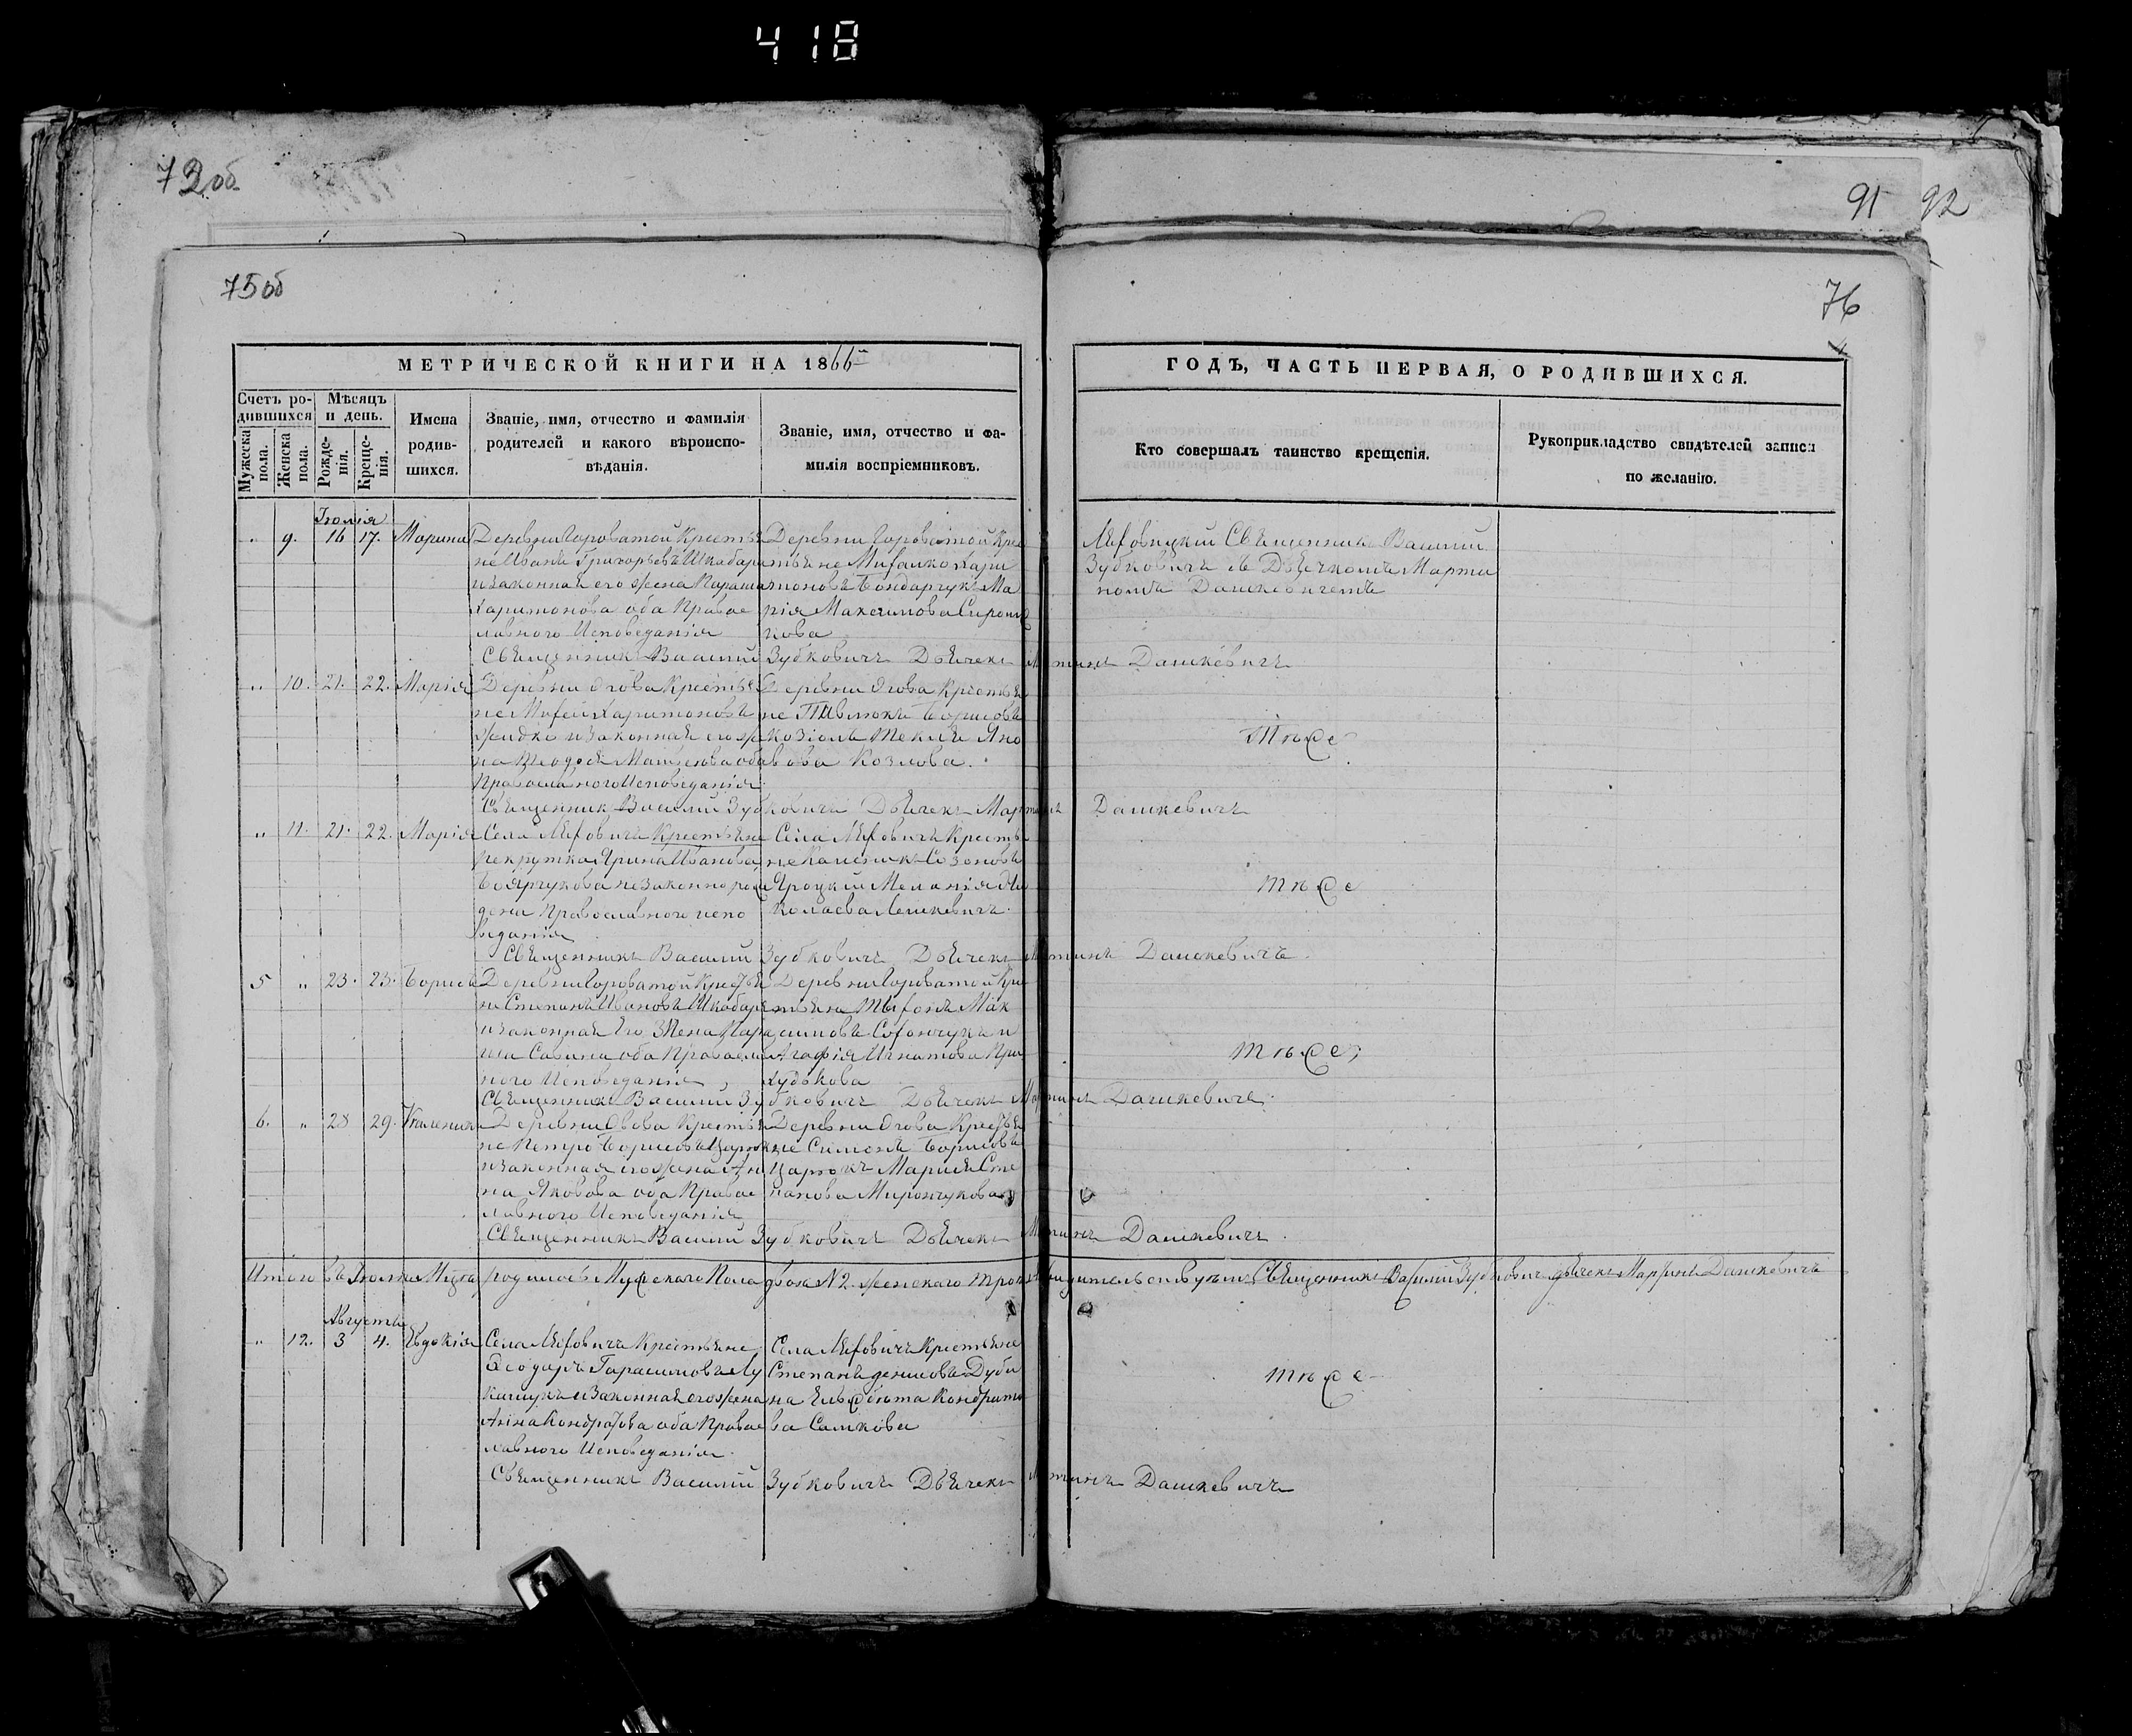 418
72об
91 92
75об
76
МЕТРИЧЕСКОЙ КНИГИ НА 1866
ГОДЪ, ЧАСТЬ ПЕРВАЯ, О РОДИВШИХСЯ.
Счетъ родившихся
Мужеска пола.
Женска пола.
Мѣсяцъ и день.
Рожденія.
Крещенія.
Имена родившихся.
Званіе, имя, отчество и фамилія
родителей и какого вѣроиспо-
вѣданія.
Званіе, имя, отчество и фа-
милія воспріемниковъ.
Кто совершалъ таинство крещенія.
Рукоприкладство свидѣтелей записи
по желанію.
Іюлія
„ 9. 16 17. Марина
Деревни Гороватой Крестья
не Иванъ Григорьевъ Шкабара
и законная его жена Параша
Харитонова оба Правос
лавного Исповеданія
Деревни Гороватой Кре
стьяне Михалко Хари
тоновъ Бондарчукъ Ма
рія Максимова
кова
Священникъ Василий
Зубковичъ съ Дьячкомъ Марти
номъ Дашкевичемъ
Священникъ Василий Зубковичъ Дьячекъ Мартинъ Дашкевичъ
„ 10. 21. 22. Марія
Деревни Огова Крестья
не Харитоновъ
Жидко и законная его же
на Теодося оба
Православного Исповеданія
Деревни Огова Крестья
не Борисовъ
Козіолъ Текля Яко
вова Козлова.
Тоже
Священникъ Василий Зубковичъ Дьячекъ Мартинъ Дашкевичъ
„ 11. 21. 22. Марія
Села Ляховичъ Крестьяне
рекрутка Ирина Иванова
Боярчукова незаконно рож
дени Православного испо
веданія
Села Ляховичъ Кресть
не Каленикъ Созоновъ
Троцкій Меланія Ни
колаева Лешкевичъ
Тоже
Священникъ Василий Зубковичъ Дьячекъ Мартинъ Дашкевичъ
5 „ 23. 23. Борисъ
Деревни Гороватой Крестья
не Степанъ Ивановъ Шкабара
и законная Его Жена Пара
ша Савина оба Правосла
ного Исповеданія
Деревни Гороватой Кре
стьяне Тихонъ Мак
симовъ Сахончукъ и
Агафія Игнатова При
ходькова
Тоже
Священникъ Василий Зубковичъ Дьячекъ Мартинъ Дашкевичъ
6. „ 28 29. Каленикъ
Деревни Огова Крестья
не Петро Борисовъ Царюкъ
и законная его жена Ан
на Яковова оба Правос
лавного Исповеданія
Деревни Огова Крестья
не Симонъ Борисовъ
Царюкъ Марися Сте
панова Мирончукова
Священникъ Василий Зубковичъ Дьячекъ Мартинъ Дашкевичъ
Итого въ Іюлѣ Мцѣ родилось Мужескаго Пола двоя № 2. женскаго Трое Священникъ Василий Зубковичъ дьячекъ Мартинъ Дашкевичъ
Августа
„ 12. 3 4. Евдокія
Села Ляховичъ Крестьяне
Ѳеодоръ Гарасимовъ Лу
кашукъ и Законная его жена
Анна Кондратова оба Правос
лавного Исповеданія
Села Ляховичъ Крестьяне
Степанъ Денисовъ Дуби
на Ельжбѣта Кондрато
ва Сачкова
Тоже
Священникъ Василий Зубковичъ Дьячекъ Мартинъ Дашкевичъ